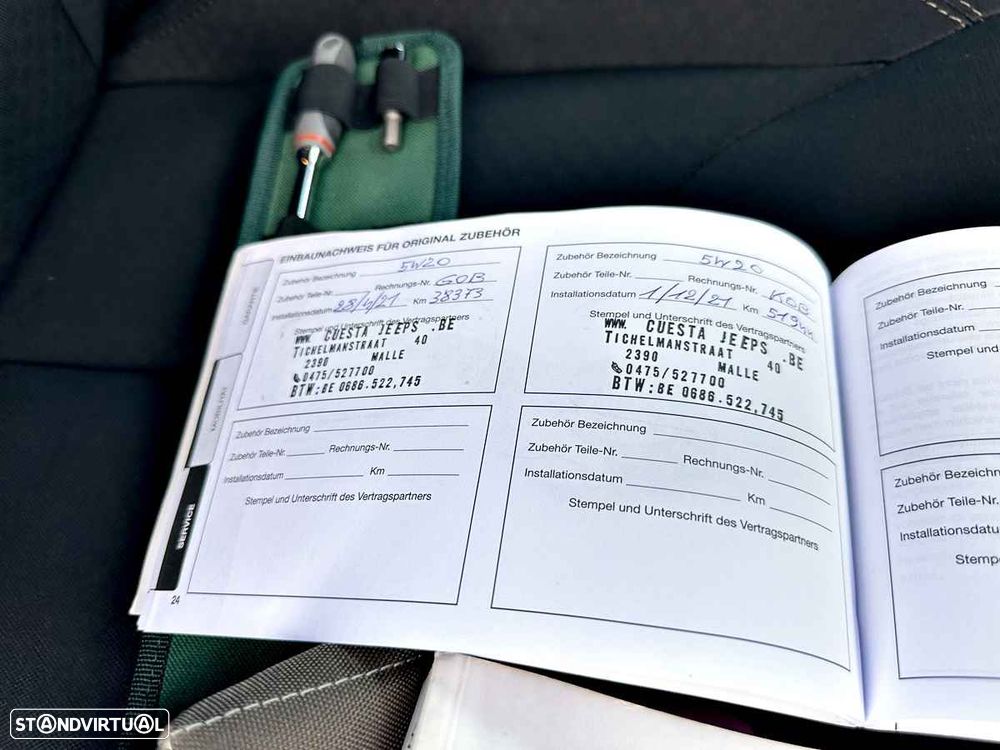 EINBAUNACHWEIS FÜR ORIGINAL ZUBEHÖR
Zubehör Bezeichnung 5W20
Zubehör Teile-Nr. Rechnungs-Nr. GOB
Installationsdatum 28/4/21 Km 38373
Stempel und Unterschrift des Vertragspartners
WWW. CUESTA JEEPS .BE
TICHELMANSTRAAT 40
2390 MALLE
0475/527700
BTW:BE 0686.522,745
Zubehör Bezeichnung 5W20
Zubehör Teile-Nr. Rechnungs-Nr. KOB
Installationsdatum 1/12/21 Km
Stempel und Unterschrift des Vertragspartners
WWW. CUESTA JEEPS .BE
TICHELMANSTRAAT 40
2390 MALLE
0475/527700
BTW:BE 0686.522,745
Zubehör Bezeichnung
Zubehör Teile-Nr. Rechnungs-Nr.
Installationsdatum Km
Stempel und Unterschrift des Vertragspartners
Zubehör Bezeichnung
Zubehör Teile-Nr. Rechnungs-Nr.
Installationsdatum Km
Stempel und Unterschrift des Vertragspartners
GARANTIE
MOBILITÄT
SERVICE
24
Zubehör Bezeichnung
Zubehör Teile-Nr.
Installationsdatum
Stempel und
Zubehör Bezeichn
Zubehör Teile-Nr.
Installationsdatu
Stemp
STANDVIRTUAL